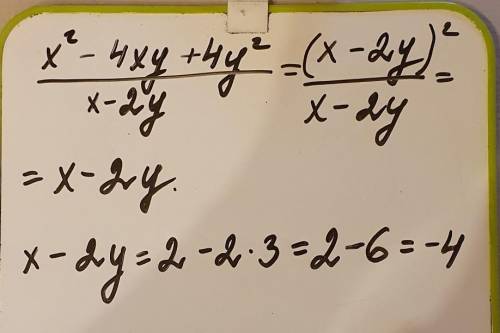 (x² - 4xy + 4y²)/(x - 2y) = (x - 2y)²/(x - 2y) =
= x - 2y.
x - 2y = 2 - 2·3 = 2 - 6 = -4